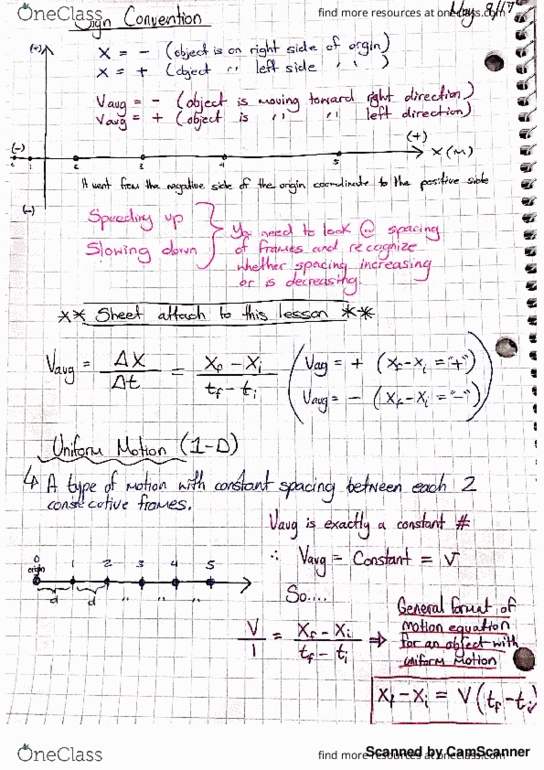 OneClass
find more resources at oneclass.com
Sign Convention
May 8/17
(+)
X = - (object is on right side of orgin)
X = + (object " left side " ")
Vavg = - (object is moving toward right direction)
Vavg = + (object is " " left direction)
(-)
(+)
X (m)
It went from the negative side of the origin coordinate to the positive side
(-)
Speeding up
Slowing down
You need to look @ spacing
of frames and recognize
whether spacing increasing
or is decreasing.
** Sheet attach to this lesson **
Vavg = ΔX / Δt = Xf - Xi / tf - ti
(Vavg = + (Xf - Xi = "+")
Vavg = - (Xf - Xi = "-"))
Uniform Motion (1-D)
↳ A type of motion with constant spacing between each 2
consecutive frames.
Vavg is exactly a constant #
∴ Vavg = Constant = V
0 1 2 3 4 5
origin
d d " " "
So....
V / 1 = Xf - Xi / tf - ti ⇒
General format of
motion equation
for an object with
uniform motion
Xf - Xi = V (tf - ti)
OneClass
find more resources at oneclass.com
Scanned by CamScanner